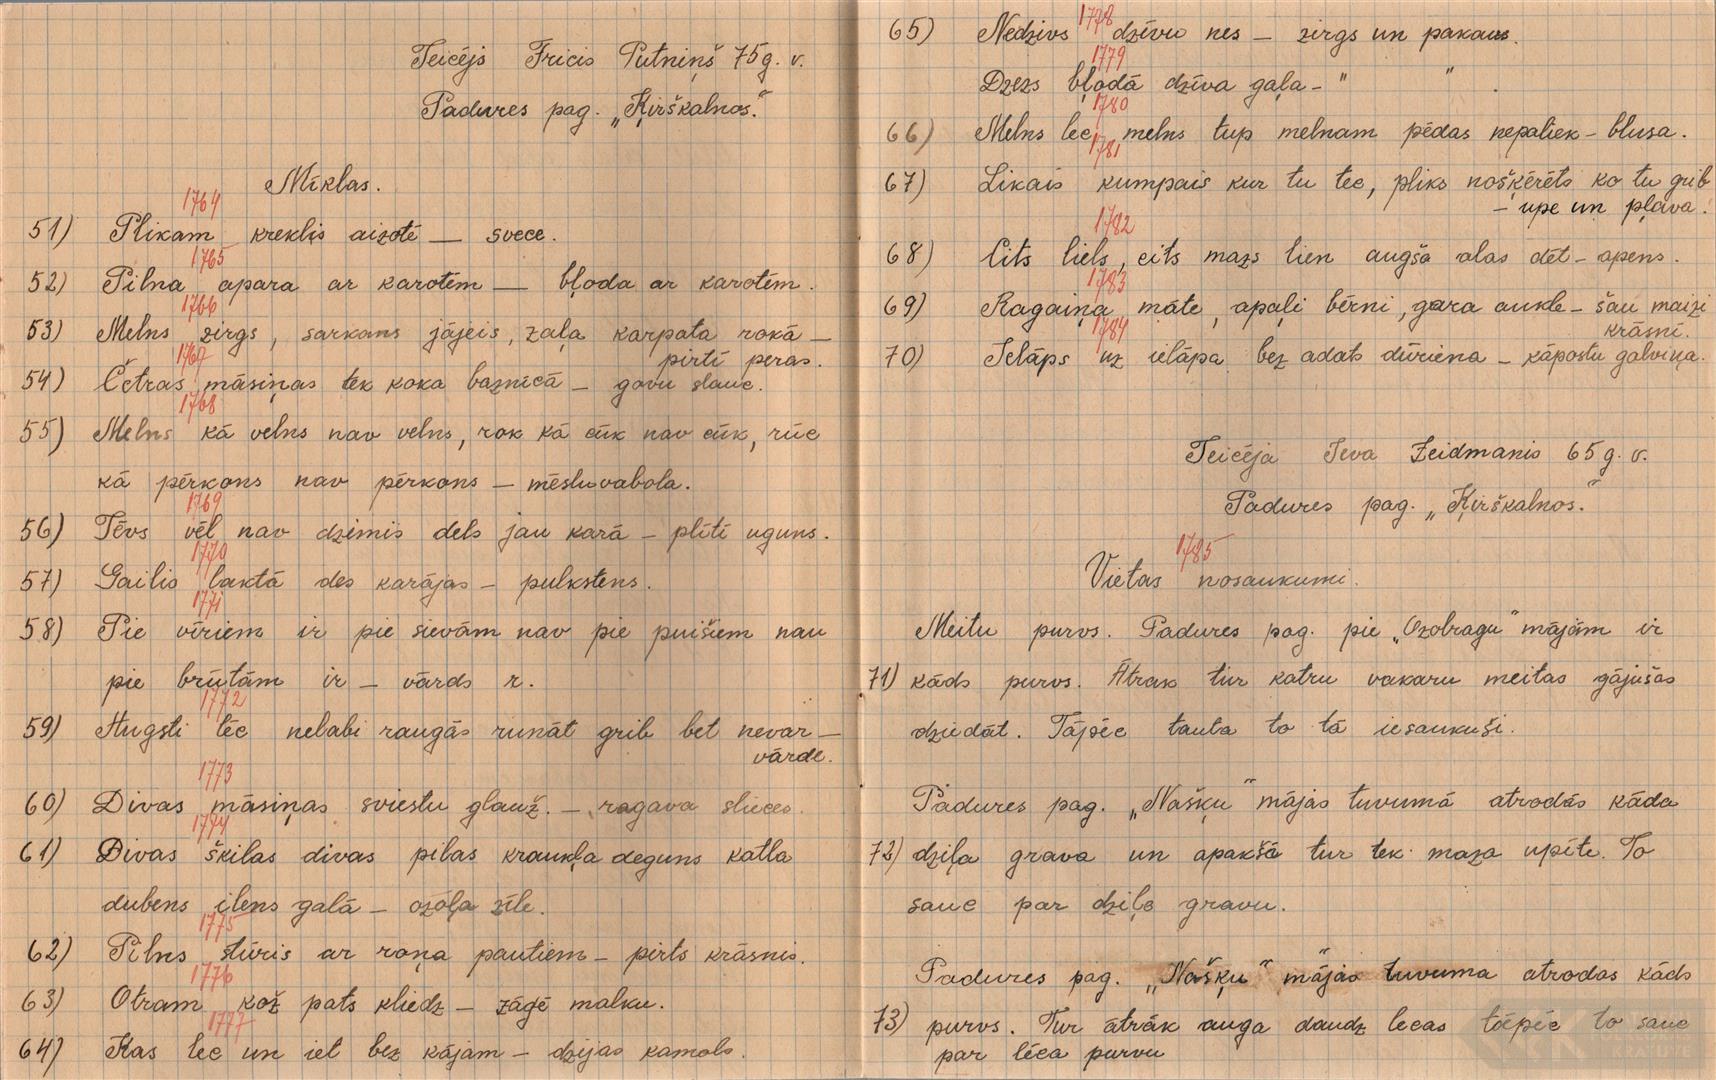 Teicējs Fricis Putniņš 75 g. v.
Padures pag. „Ķirškalnos.“
Mīklas.
1764
51) Plikam kreklis aizotē — svece.
1765
52) Pilna apara ar karotēm — bļoda ar karotēm.
1766
53) Melns zirgs, sarkans jājeis, zaļa karpata rokā —
pirtī peras.
1767
54) Četras māsiņas tek koka baznīcā — govu slauc.
1768
55) Melns kā velns nav velns, rok kā cūk nav cūk, rūc
kā pērkons nav pērkons — mēsluvabola.
1769
56) Tēvs vēl nav dzimis dels jau karā — plītī uguns.
1770
57) Gailis laktā des karājas — pulkstens.
1771
58) Pie vīriem ir pie sievām nav pie puišiem nau
pie brūtām ir — vārds r.
1772
59) Augsti tēc nelabi raugās runāt grib bet nevar —
vārde.
1773
60) Divas māsiņas sviestu glauž. — ragava slieces.
1774
61) Divas šķilas divas pilas kraukļa deguns katla
dubens ilens galā — ozoļa zīle.
1775
62) Pilns stūris ar roņa pautiem — pirts krāsnis.
1776
63) Otram kož pats kliedz — zāgē malku.
1777
64) Kas lec un iet bez kājām — dzijas kamols.
1778
65) Nedzivs dzīvu nes — zirgs un pakaus.
1779
Dzezs bļodā dzīva gaļa — " "
1780
66) Melns lec, melns tup melnam pēdas nepaliek — blusa.
1781
67) Likais kumpais kur tu tec, pliks noškērēts ko tu grib
— upe un pļava!
1782
68) Cits liels, cits mazs lien augšā alas dēt — apens.
1783
69) Ragaiņa māte, apaļi bērni, gara aukle — šau maizi
krāsnī.
1784
70) Ielāps uz ielāpa bez adats dūriena — kāpostu galviņa.
Teicēja Ieva Zeidmanis 65 g. v.
Padures pag. „Ķirškalnos.“
1785
Vietas nosaukumi.
Meitu purvs. Padures pag. pie „Ozobragu“ mājām ir
71) kāds purvs. Ātrak tur katru vakaru meitas gājušas
dziedāt. Tāpēc tauta to tā iesaukuši.
Padures pag. „Našķu“ mājas tuvumā atrodas kāda
72) dziļa grava un apakšā tur tek maza upīte. To
sauc par dziļo gravu.
Padures pag. „Našķu“ mājas tuvuma atrodas kāds
73) purvs. Tur ātrāk auga daudz lecas tāpēc to sauc
par lēca purvu